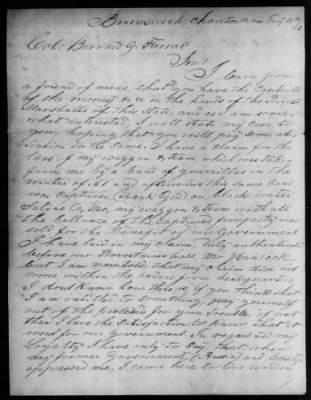 Brunswick, Chariton Co Mo Feby 10th 63
Col: Bernard G. Farrar
Sir!
I learn from
a friend of mine that you have the Controll
of the money & ce in the hands of the Provost
Marshalls of this State, and as I am some
what interested, I will state my Case to
you, hoping that you will pay some at
tention to the same. I have a claim for the
loss of my waggon & team which was taken
from me by a band of guerrillas in the
winter of 61 and afterwards this same band
was captured (thank God) on black water
Saline Co, Mo, my waggon & team with all
the ballance of the captured property was
sold for the benefit of our Government
I have laid in my claim, duly authenticated
before our Provost Marshall Mr Hancock
but I am now told that my claim does not
come within the orders from headquarters
I dont Know how this is, if you think that
I am intitled to something, pay yourself
out of the proceeds for your trouble if not
then I have the Satisfaction to Know that it
went for our Government. In regard to my
Loyalty I have only to say, that when
my former Government, (Prussia) and Society
oppressed me, I came here to live under